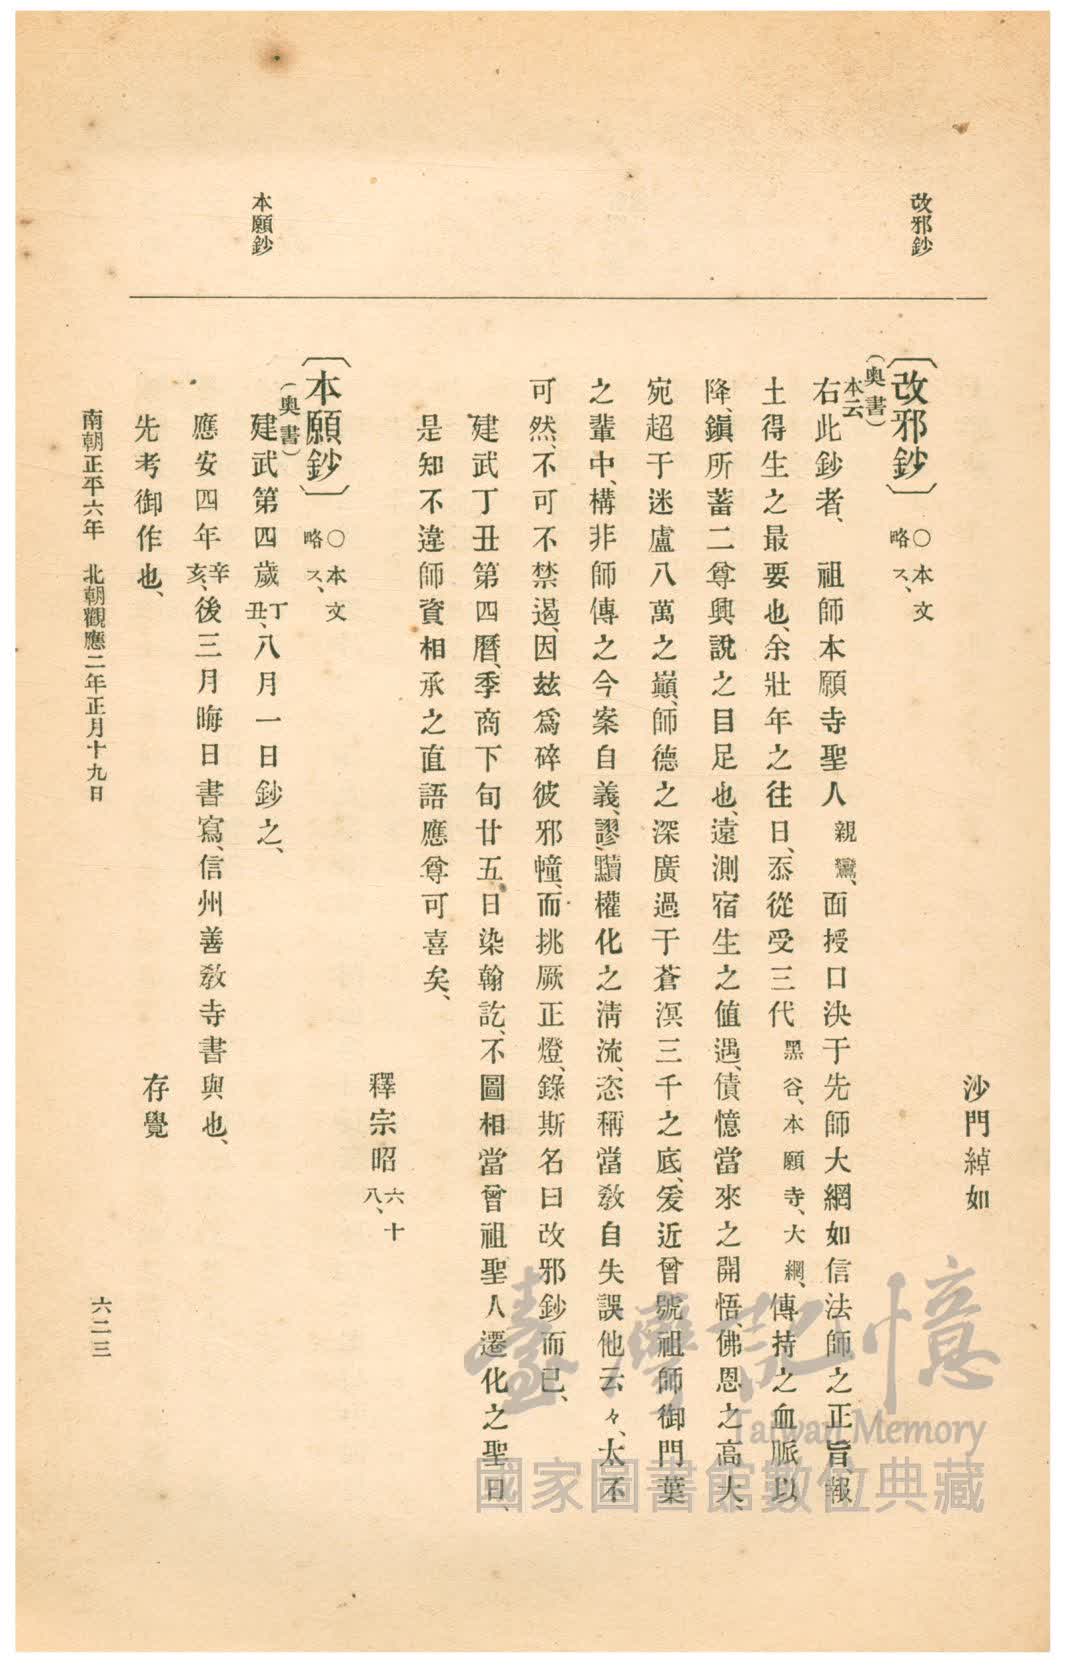 改邪鈔
本願鈔
沙門綽如
〔改邪鈔〕 ○本文略ス、
(奧書)
本云
右此鈔者、祖師本願寺聖人親鸞、面授口決于先師大網如信法師之正旨報
土得生之最要也、余壯年之往日、忝從受三代黑谷、本願寺、大網、傳持之血脈以
降、鎭所蓄二尊興說之目足也、遠測宿生之値遇、債憶當來之開悟、佛恩之高大、
宛超于迷盧八萬之巔、師德之深廣過于蒼溟三千之底、爰近曾號祖師御門葉
之輩中、構非師傳之今案自義、謬黷權化之淸流、恣稱當敎自失誤他云々、太不
可然、不可不禁遏、因玆爲碎彼邪幢、而挑厥正燈、錄斯名曰改邪鈔而已、
建武丁丑第四曆、季商下旬廿五、日染翰訖、不圖相當曾祖聖人遷化之聖日、
是知不違師資相承之直語應尊可喜矣、
釋宗昭六十八、
〔本願鈔〕 ○本文略ス、
(奧書)
建武第四歲丁丑、八月一日鈔之、
應安四年辛亥、後三月晦日書寫、信州善敎寺書與也、
先考御作也、 存覺
南朝正平六年 北朝觀應二年正月十九日
六二三
臺灣記憶
Taiwan Memory
國家圖書館數位典藏